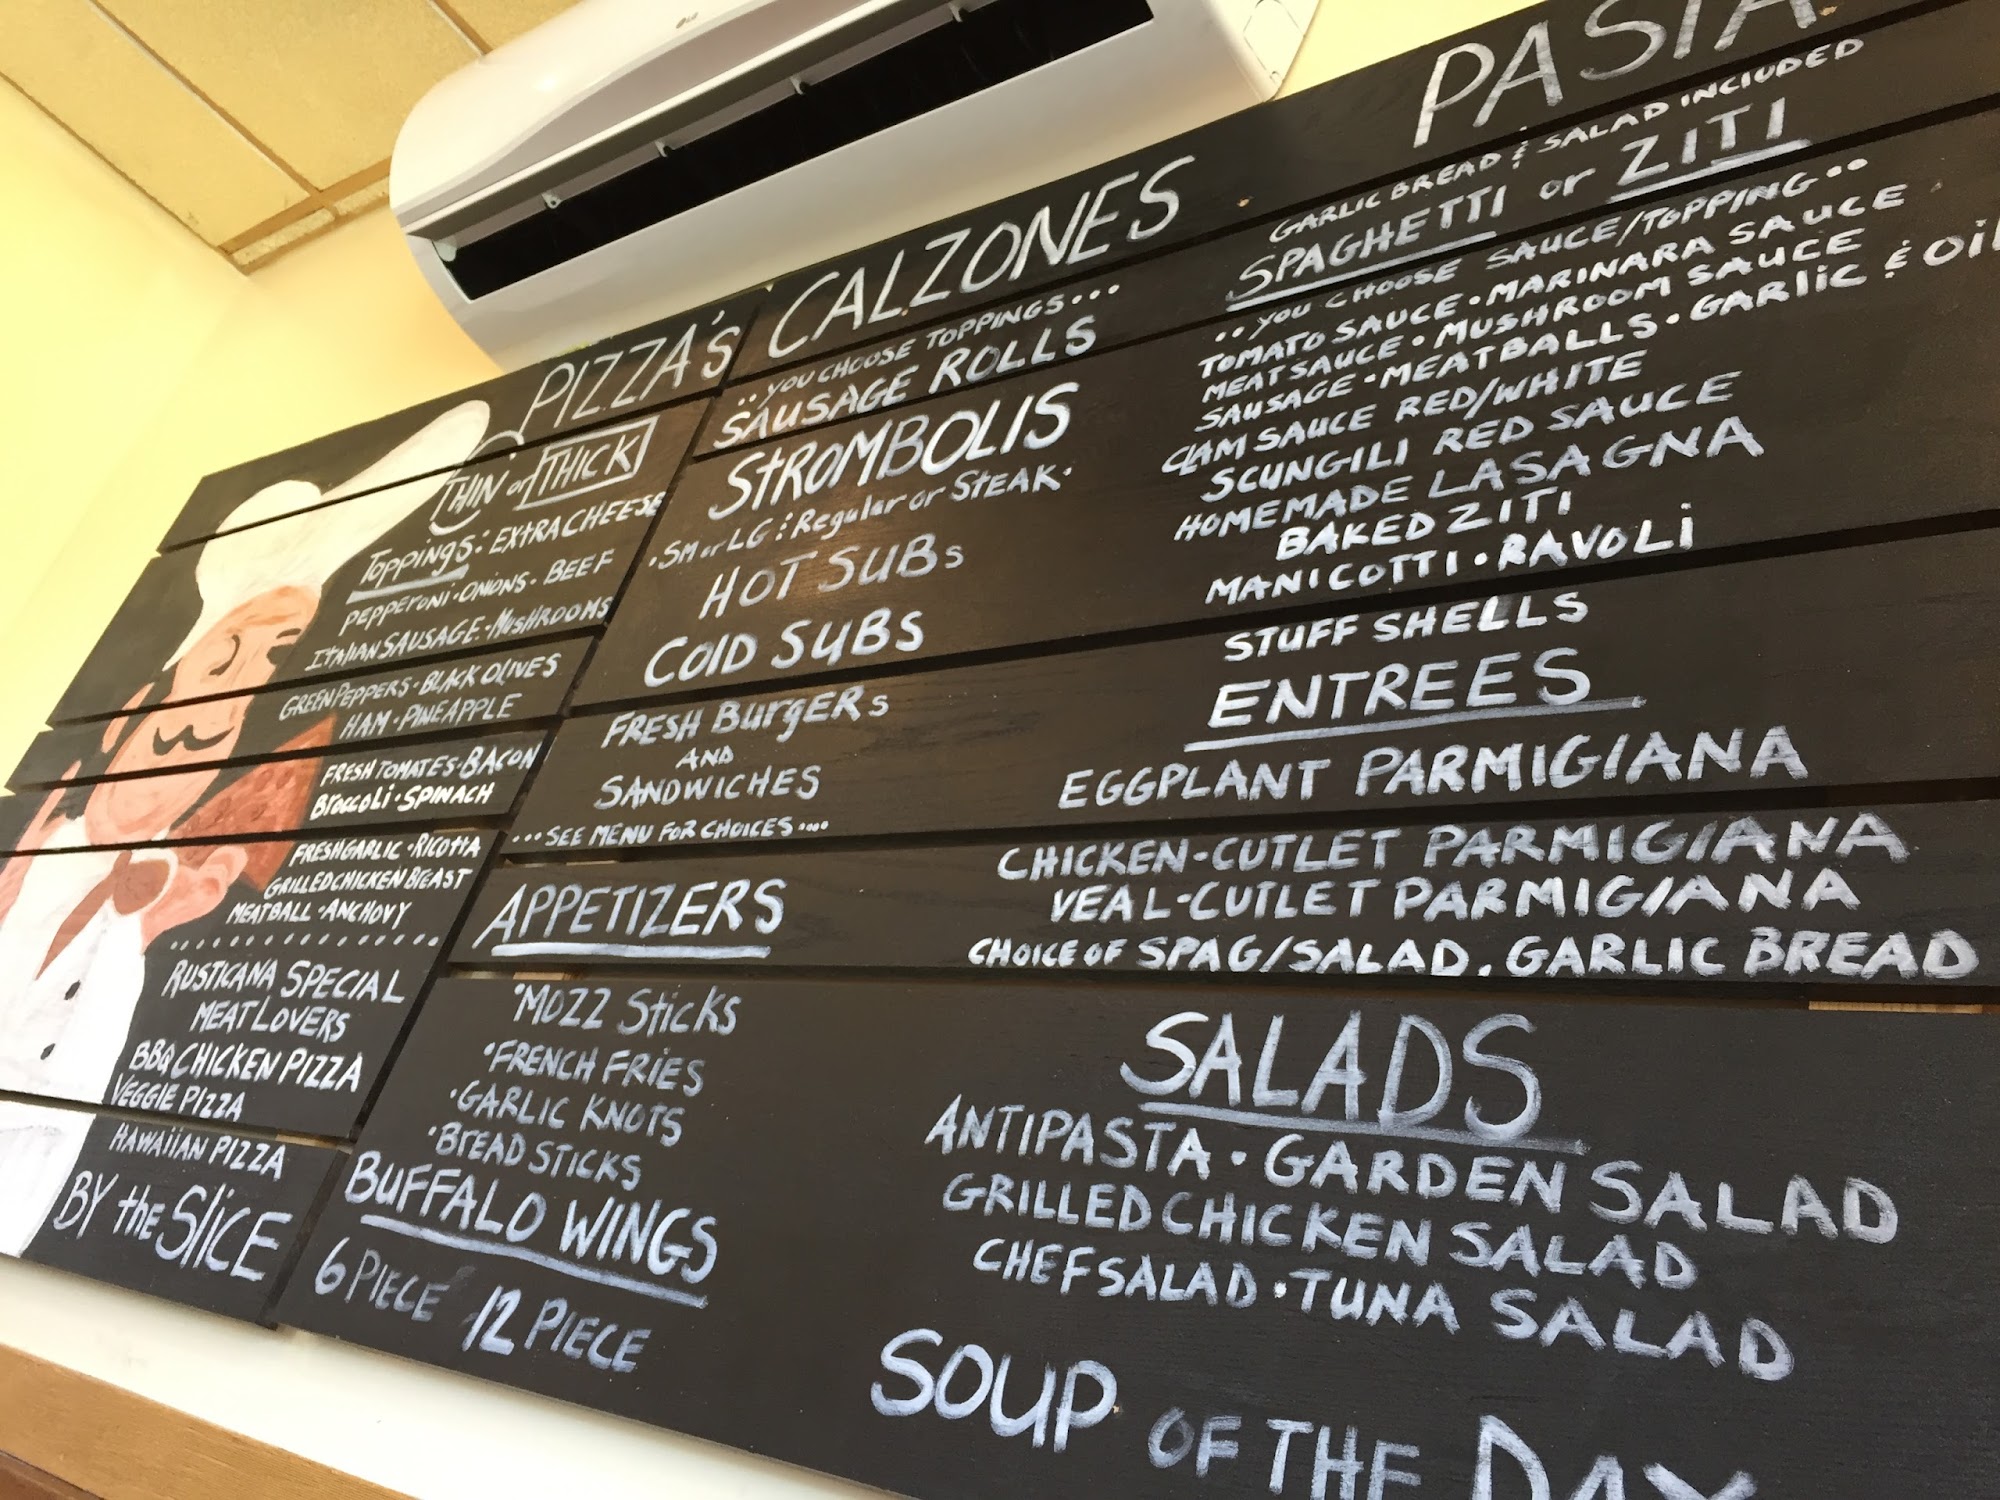 LG
PIZZA'S
THIN or THICK
Toppings: EXTRA CHEESE
PEPPERONI · ONIONS · BEEF
ITALIAN SAUSAGE · MUSHROOMS
GREEN PEPPERS · BLACK OLIVES
HAM · PINEAPPLE
FRESH TOMATES · BACON
BROCCOLI · SPINACH
FRESH GARLIC · RICOTTA
GRILLED CHICKEN BREAST
MEATBALL · ANCHOVY
RUSTICANA SPECIAL
MEAT LOVERS
BBQ CHICKEN PIZZA
VEGGIE PIZZA
HAWAIIAN PIZZA
BY the SLICE
CALZONES
..YOU CHOOSE TOPPINGS...
SAUSAGE ROLLS
STROMBOLIS
·SM or LG & Regular or STEAK·
HOT SUBS
COLD SUBS
FRESH BURGERS
AND
SANDWICHES
...SEE MENU FOR CHOICES....
APPETIZERS
·MOZZ STICKS
·FRENCH FRIES
·GARLIC KNOTS
·BREAD STICKS
BUFFALO WINGS
6 PIECE 12 PIECE
PASTA
GARLIC BREAD & SALAD INCLUDED
SPAGHETTI or ZITI
..YOU CHOOSE SAUCE/TOPPING..
TOMATO SAUCE · MARINARA SAUCE
MEAT SAUCE · MUSHROOM SAUCE
SAUSAGE · MEATBALLS · GARLIC & OIL
CLAM SAUCE RED/WHITE
SCUNGILI RED SAUCE
HOMEMADE LASAGNA
BAKED ZITI
MANICOTTI · RAVOLI
STUFF SHELLS
ENTREES
EGGPLANT PARMIGIANA
CHICKEN-CUTLET PARMIGIANA
VEAL-CUTLET PARMIGIANA
CHOICE OF SPAG/SALAD. GARLIC BREAD
SALADS
ANTIPASTA · GARDEN SALAD
GRILLED CHICKEN SALAD
CHEF SALAD · TUNA SALAD
SOUP OF THE DAY